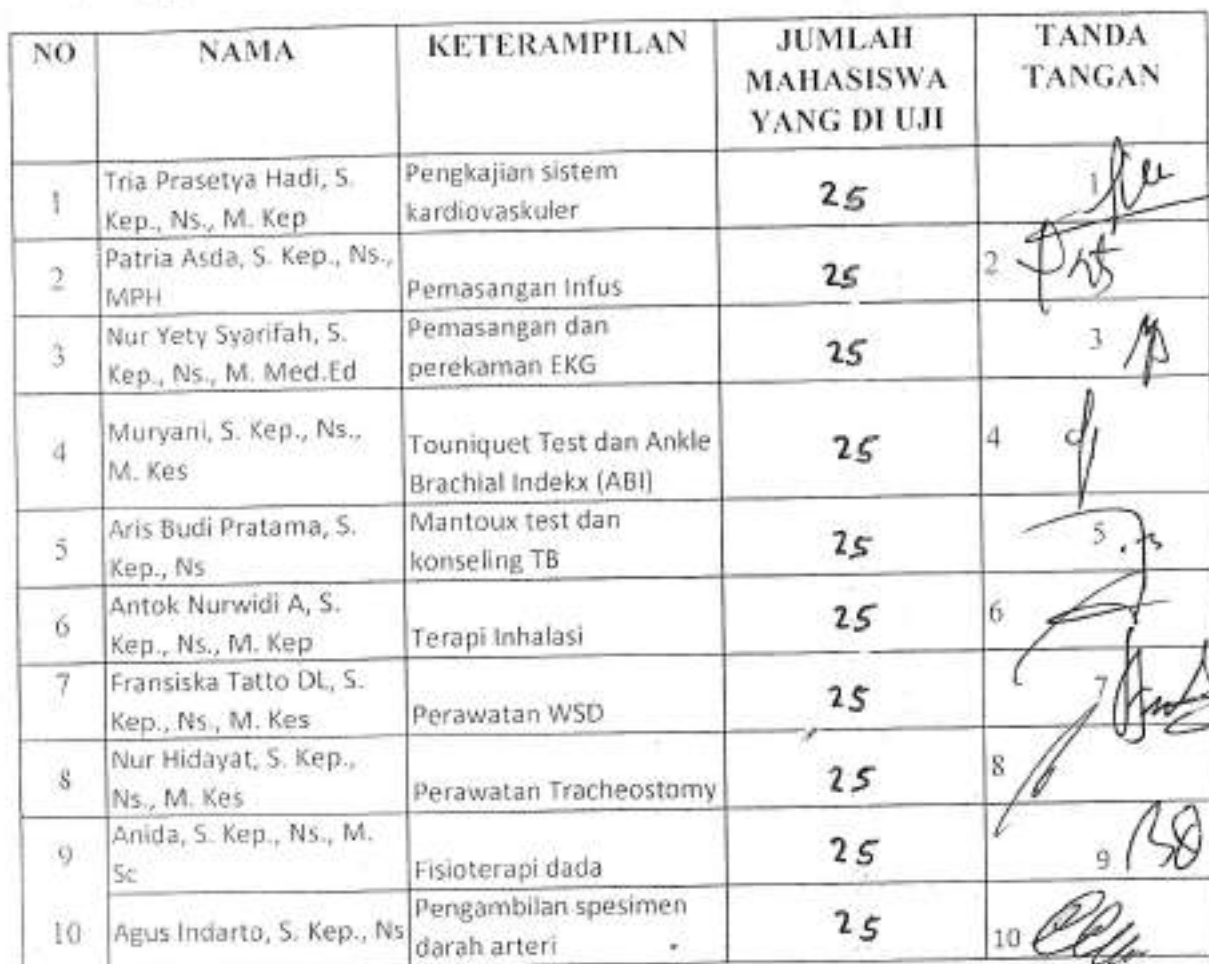 NO NAMA KETERAMPILAN JUMLAH MAHASISWA YANG DI UJI TANDA TANGAN
1 Tria Prasetya Hadi, S. Kep., Ns., M. Kep Pengkajian sistem kardiovaskuler 25 1
2 Patria Asda, S. Kep., Ns., MPH Pemasangan Infus 25 2
3 Nur Yety Syarifah, S. Kep., Ns., M. Med.Ed Pemasangan dan perekaman EKG 25 3
4 Muryani, S. Kep., Ns., M. Kes Touniquet Test dan Ankle Brachial Indekx (ABI) 25 4
5 Aris Budi Pratama, S. Kep., Ns Mantoux test dan konseling TB 25 5
6 Antok Nurwidi A, S. Kep., Ns., M. Kep Terapi Inhalasi 25 6
7 Fransiska Tatto DL, S. Kep., Ns., M. Kes Perawatan WSD 25 7
8 Nur Hidayat, S. Kep., Ns., M. Kes Perawatan Tracheostomy 25 8
9 Anida, S. Kep., Ns., M. Sc Fisioterapi dada 25 9
10 Agus Indarto, S. Kep., Ns Pengambilan spesimen darah arteri 25 10